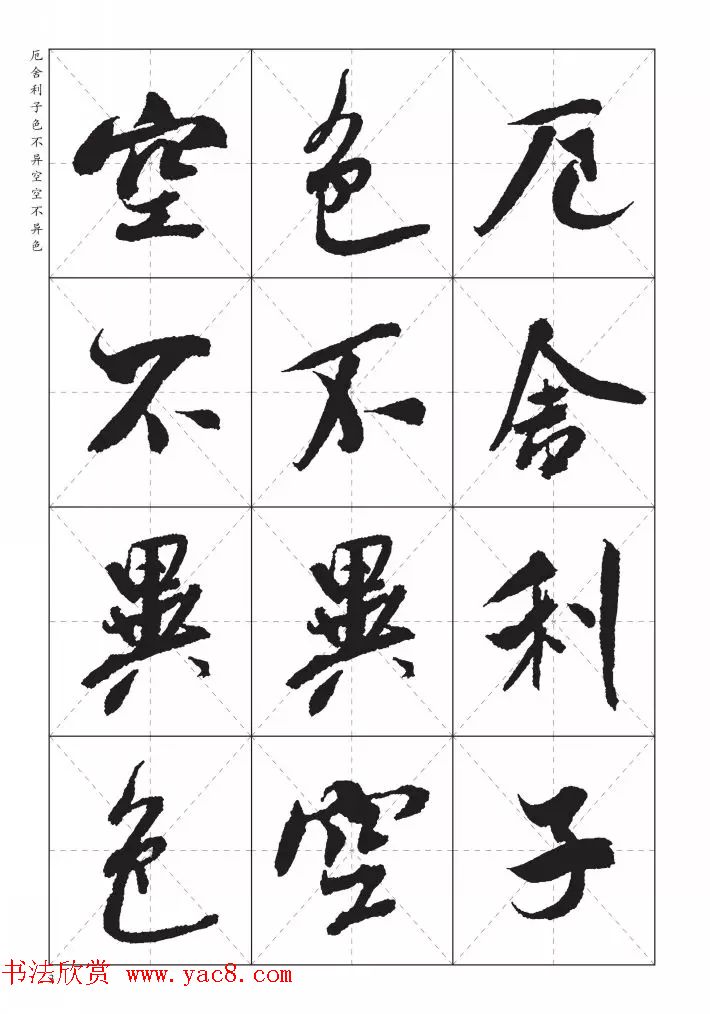 厄舍利子色不异空空不异色
厄舍利子
色不異空
空不異色
书法欣赏 www.yac8.com